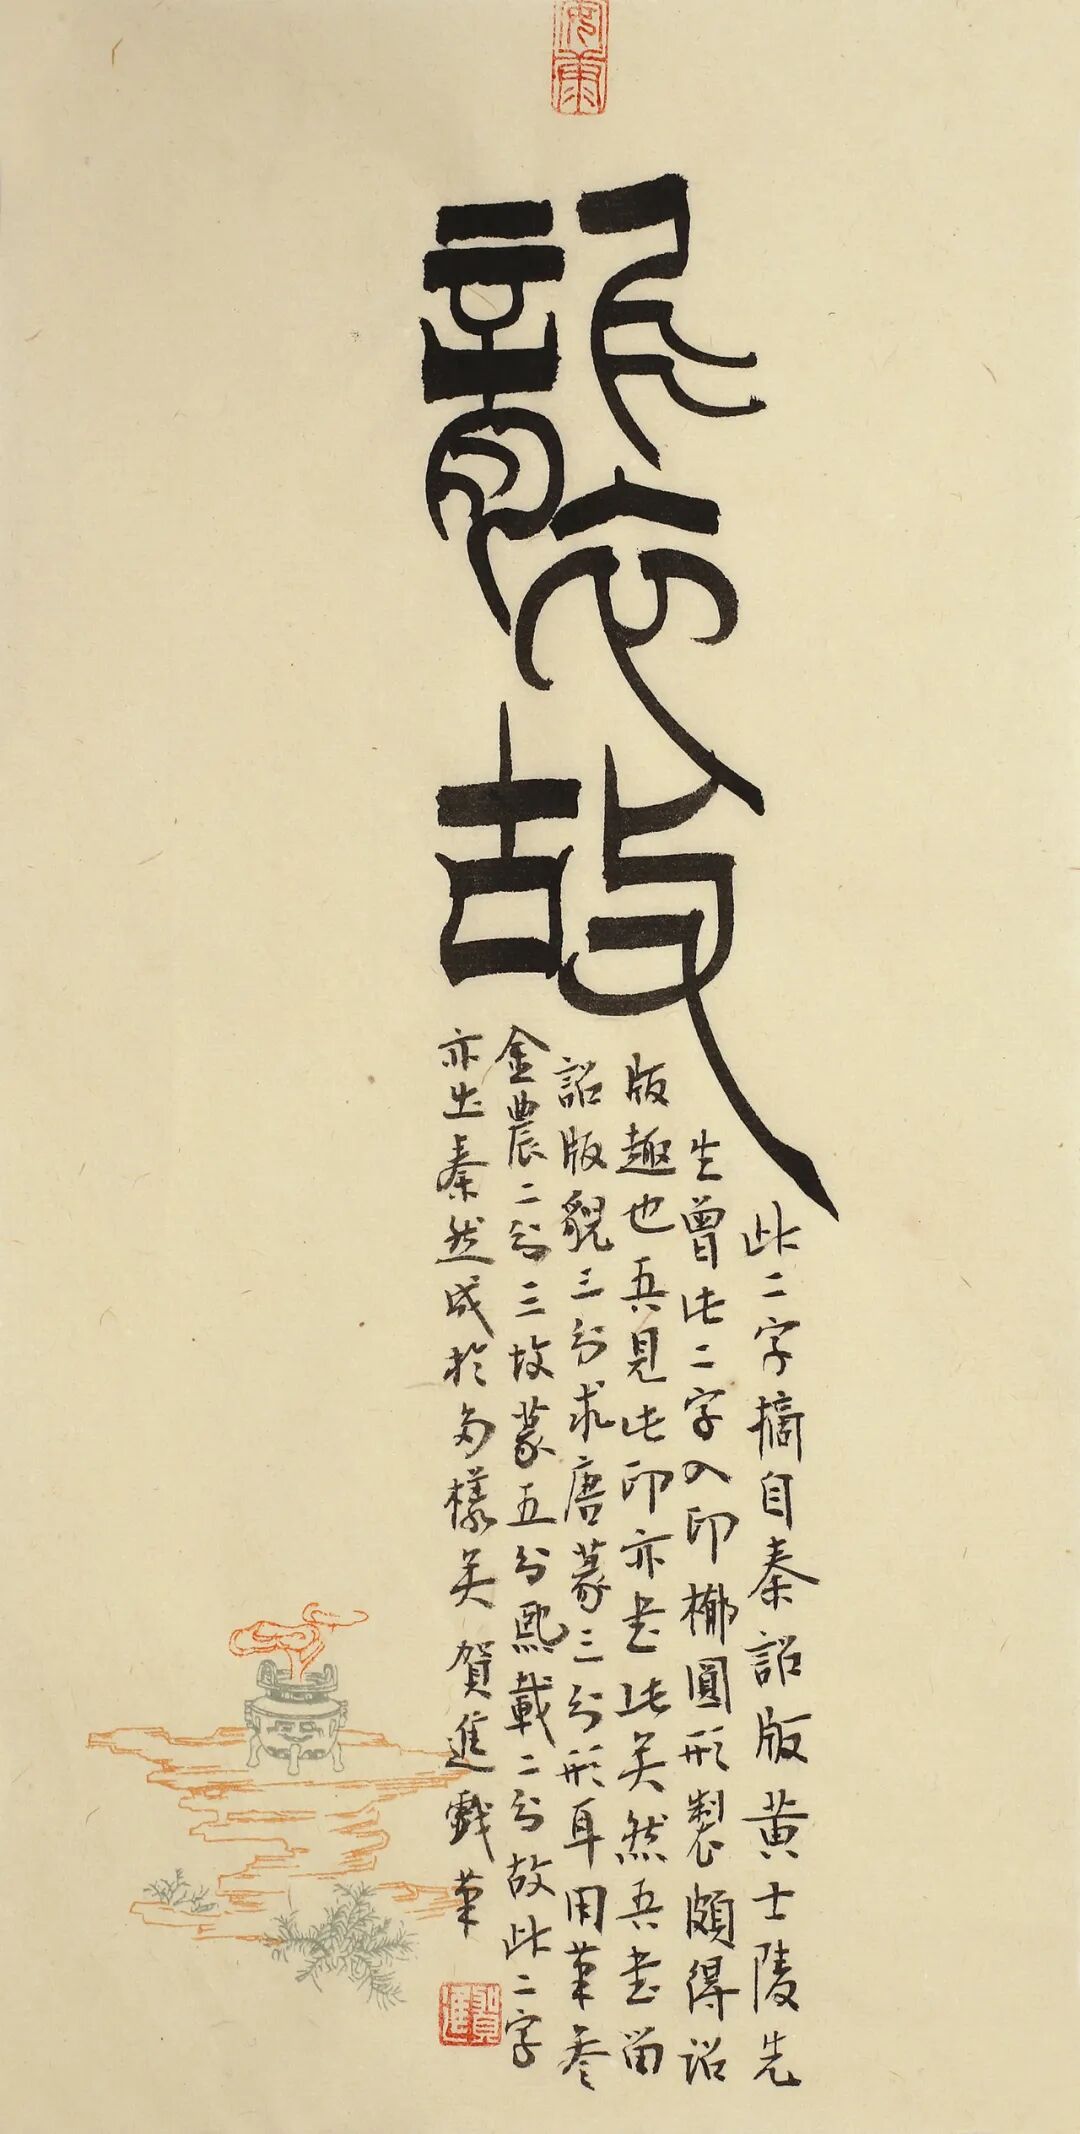 襲故
此二字摘自秦詔版黄士陵先
生曾此二字入印橢圓形製頗得詔
版趣也吾見此印亦書此矣然吾書留
詔版貌三分求唐篆三分形耳用筆參
金農二分三墳篆五分熙載二分故此二字
亦出秦然成於多樣矣 賀進戲筆
賀進